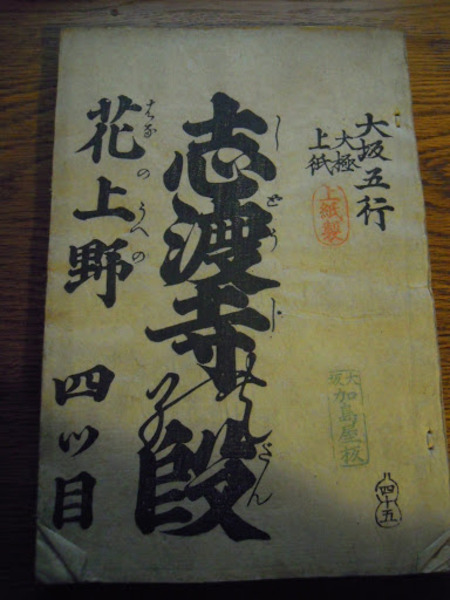 大坂五行
大極
上紙
上紙製
大坂
加島屋板
四十五
志渡寺の段
しどうじのだん
花上野 四ツ目
はなのうへの